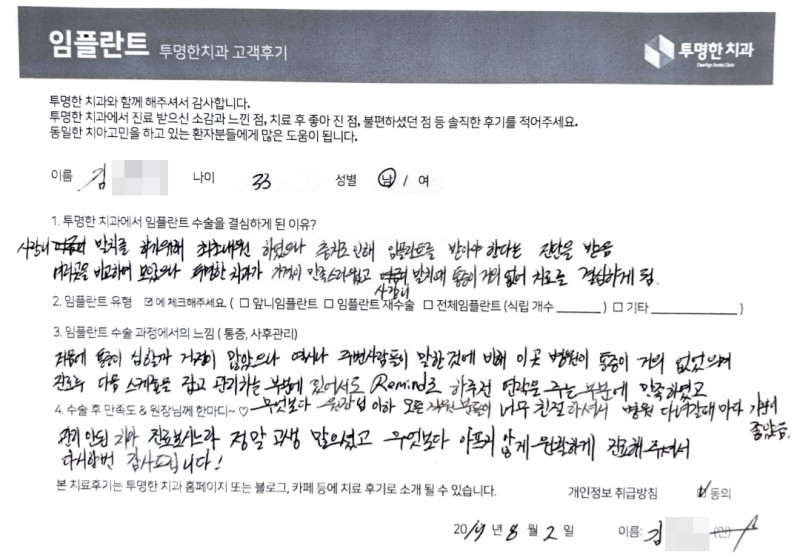 임플란트 투명한치과 고객후기
투명한 치과
투명한 치과와 함께 해주셔서 감사합니다.
투명한 치과에서 진료 받으신 소감과 느낀 점, 치료 후 좋아 진 점, 불편하셨던 점 등 솔직한 후기를 적어주세요.
동일한 치아고민을 하고 있는 환자분들에게 많은 도움이 됩니다.
이름 김 나이 33 성별 남 / 여
1. 투명한 치과에서 임플란트 수술을 결심하게 된 이유?
사랑니 발치를 하기위해 최초내원 하였으나 충치로 인해 임플란트를 받아야 한다는 진단을 받음
여러곳을 비교하며 보았으나 투명한 치과가 가격이 만족스러웠고 사랑니 발치때 통증이 거의 없어 치료를 결심하게 됨
2. 임플란트 유형 ☑ 에 체크해주세요. ( □ 앞니임플란트 □ 임플란트 재수술 □ 전체임플란트 (식립 개수 ) □ 기타 )
3. 임플란트 수술 과정에서의 느낌 ( 통증, 사후관리)
처음에 통증이 심할까 걱정이 많았으나 여시나 주변사람들이 말한것에 비해 이곳 병원이 통증이 거의 없었으며
진료후 다음 스케쥴을 잡고 관리하는 부분에 있어서도 Remind로 하루전 연락을 주는 부분에 만족하였고
4. 수술 후 만족도 & 원장님께 한마디~ ♡ 무엇보다 원장님 이하 모든 직원 분들이 너무 친절하셔서 병원 다녀갈때 마다 기분이 좋았음.
관리 안된 치아 진료보시느라 정말 고생 많으셨고 무엇보다 아프지 않게 원활하게 진료해 주셔서
다시한번 감사드립니다!
본 치료후기는 투명한 치과 홈페이지 또는 블로그, 카페 등에 치료 후기로 소개 될 수 있습니다. 개인정보 취급방침 ☑ 동의
2019 년 8 월 2 일 이름: 김 (인)